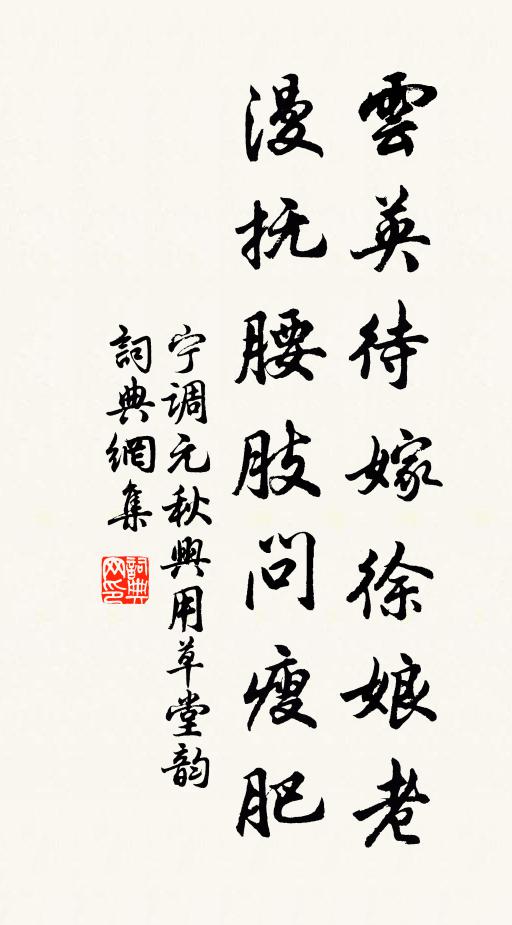 雲英待嫁徐娘老
漫抚腰肢問瘦肥
宁調元秋興用草堂韵
詞典網集
詞典网印